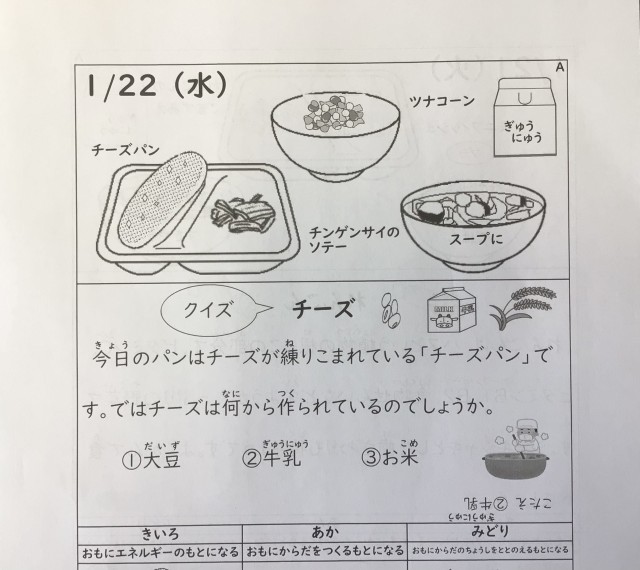 A
1/22（水）
ツナコーン
ぎゅう
にゅう
チーズパン
チンゲンサイの
ソテー
スープに
クイズ
チーズ
MILK
きょう ね
今日のパンはチーズが練りこまれている「チーズパン」で
なに つく
す。ではチーズは何から作られているのでしょうか。
だいず ぎゅうにゅう こめ
①大豆 ②牛乳 ③お米
ぎゅうにゅう
こたえ ②牛乳
きいろ あか みどり
おもにエネルギーのもとになる おもにからだをつくるもとになる おもにからだのちょうしをととのえるもとになる